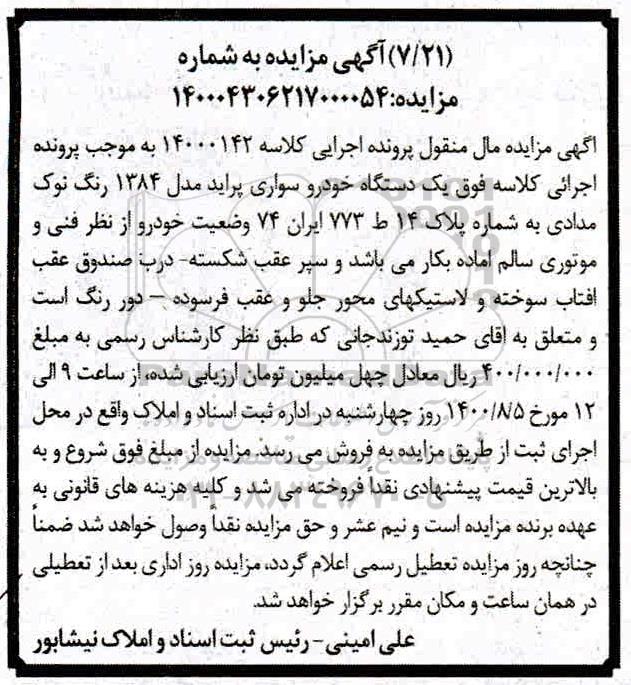 (۷/۲۱) آگهی مزایده به شماره
مزایده:۱۴۰۰۰۴۳۰۶۲۱۷۰۰۰۰۵۴
اگهی مزایده مال منقول پرونده اجرایی کلاسه ۱۴۰۰۰۱۴۲ به موجب پرونده
اجرائی کلاسه فوق یک دستگاه خودرو سواری پراید مدل ۱۳۸۴ رنگ نوک
مدادی به شماره پلاک ۱۴ ط ۷۷۳ ایران ۷۴ وضعیت خودرو از نظر فنی و
موتوری سالم اماده بکار می باشد و سپر عقب شکسته- درب صندوق عقب
افتاب سوخته و لاستیکهای محور جلو و عقب فرسوده – دور رنگ است
و متعلق به اقای حمید توزندجانی که طبق نظر کارشناس رسمی به مبلغ
۴۰۰/۰۰۰/۰۰۰ ریال معادل چهل میلیون تومان ارزیابی شده، از ساعت ۹ الی
۱۲ مورخ ۱۴۰۰/۸/۵ روز چهارشنبه در اداره ثبت اسناد و املاک واقع در محل
اجرای ثبت از طریق مزایده به فروش می رسد. مزایده از مبلغ فوق شروع و به
بالاترین قیمت پیشنهادی نقداً فروخته می شد و کلیه هزینه های قانونی به
عهده برنده مزایده است و نیم عشر و حق مزایده نقداً وصول خواهد شد ضمناً
چنانچه روز مزایده تعطیل رسمی اعلام گردد، مزایده روز اداری بعد از تعطیلی
در همان ساعت و مکان مقرر برگزار خواهد شد.
علی امینی- رئیس ثبت اسناد و املاک نیشابور